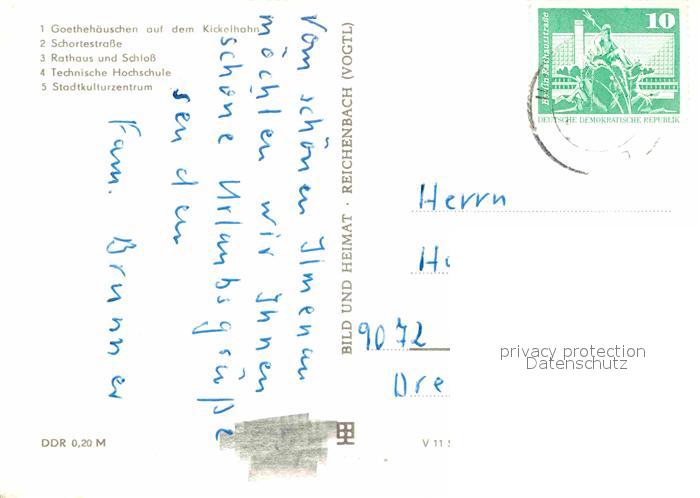 1 Goethehäuschen auf dem Kickelhahn
2 Schortestraße
3 Rathaus und Schloß
4 Technische Hochschule
5 Stadtkulturzentrum
Vom schönen Ilmenau
möchten wir Ihnen
schöne Urlaubsgrüße
senden
Fam. Brunner
BILD UND HEIMAT · REICHENBACH (VOGTL)
10
DEUTSCHE DEMOKRATISCHE REPUBLIK
Herrn
9072
Dre
privacy protection
Datenschutz
DDR 0,20 M
V 11